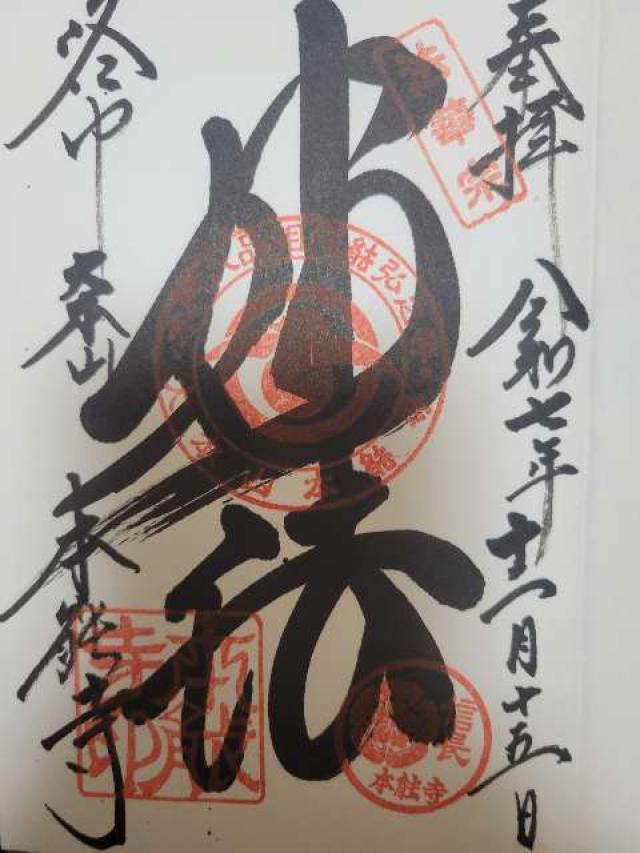 奉拝
令和七年十一月十五日
法華宗
妙法
洛中
大本山
本能寺
信長
本能寺